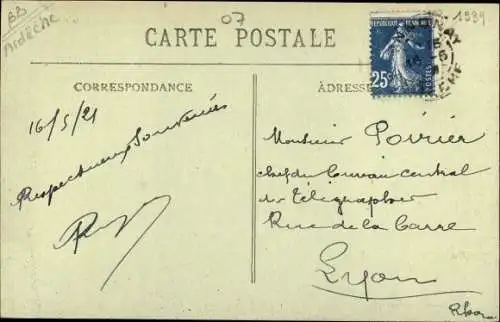 BB
Ardèche
07
1989
CARTE POSTALE
CORRESPONDANCE
ADRESSE
REPUBLIQUE FRANÇAISE
25c
POSTES
16/5/21
Respectueux Souvenirs
Monsieur Poirier
chef du bureau central
des Télégraphes
Rue de la Barre
Lyon
Rhone